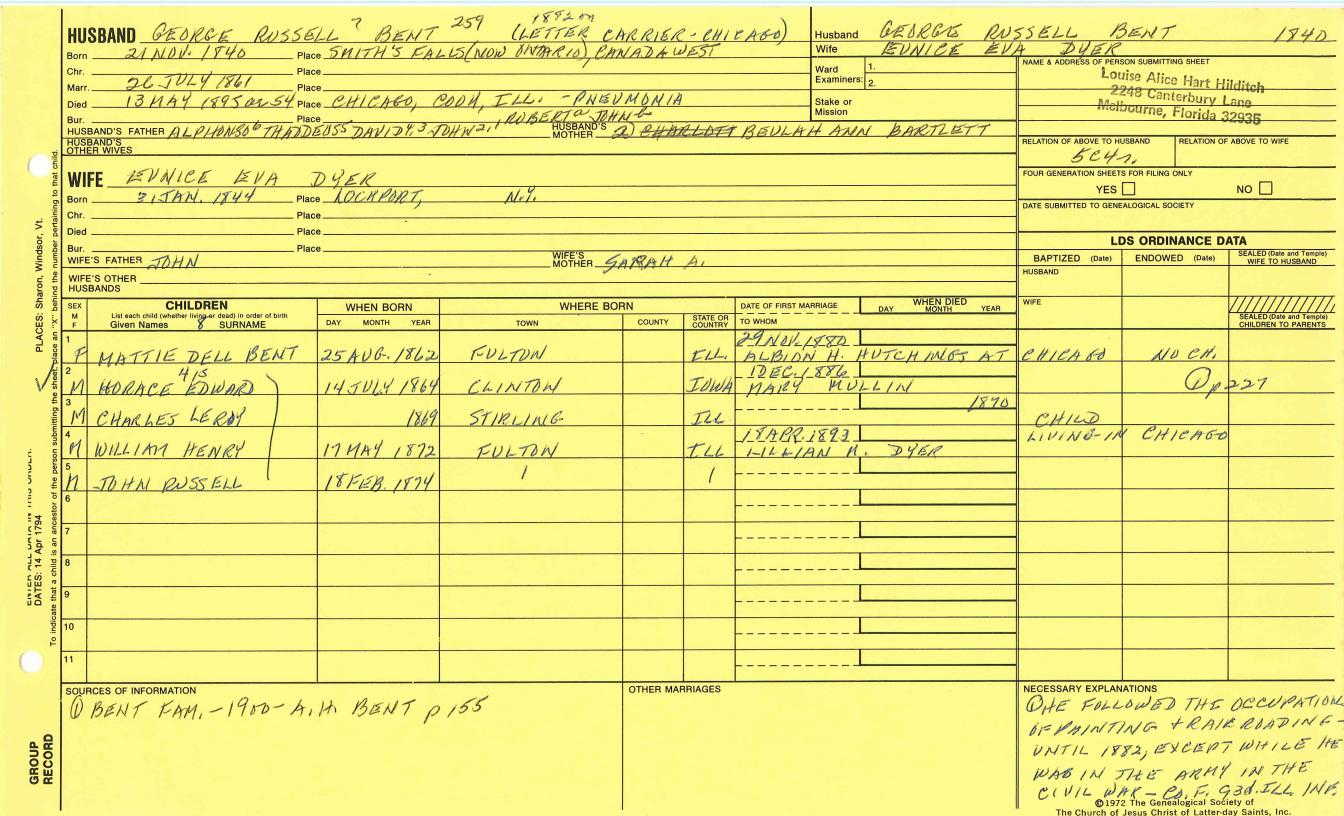 HUSBAND GEORGE RUSSELL 7 BENT 259 1882 on (LETTER CARRIER-CHICAGO)
Born 21 NOV. 1840 Place SMITH'S FALLS (NOW ONTARIO), CANADA WEST
Chr. Place
Marr. 26 JULY 1861 Place
Died 13 MAY 1895 or 54 Place CHICAGO, COOK, ILL. - PNEUMONIA
Bur. Place
HUSBAND'S FATHER ALPHONSO 6 THADDEOS 5 DAVID 4, 3 JOHN 2, 1, ROBERT a JOHN b HUSBAND'S MOTHER 2) CHARLOTT BEULAH ANN BARTLETT
HUSBAND'S OTHER WIVES
WIFE EUNICE EVA DYER
Born 31 JAN. 1844 Place LOCKPORT, N.Y.
Chr. Place
Died Place
Bur. Place
WIFE'S FATHER JOHN WIFE'S MOTHER SARAH A.
WIFE'S OTHER HUSBANDS
Husband GEORGE RUSSELL BENT 1840
Wife EUNICE EVA DYER
Ward Examiners: 1. 2.
Stake or Mission
NAME & ADDRESS OF PERSON SUBMITTING SHEET
Louise Alice Hart Hilditch
2248 Canterbury Lane
Melbourne, Florida 32935
RELATION OF ABOVE TO HUSBAND RELATION OF ABOVE TO WIFE
5C4r.
FOUR GENERATION SHEETS FOR FILING ONLY
YES NO
DATE SUBMITTED TO GENEALOGICAL SOCIETY
LDS ORDINANCE DATA
BAPTIZED (Date) ENDOWED (Date) SEALED (Date and Temple) WIFE TO HUSBAND
HUSBAND
WIFE
SEALED (Date and Temple) CHILDREN TO PARENTS
SEX M F CHILDREN WHEN BORN WHERE BORN DATE OF FIRST MARRIAGE WHEN DIED
List each child (whether living or dead) in order of birth
Given Names 8 SURNAME DAY MONTH YEAR TOWN COUNTY STATE OR COUNTRY TO WHOM DAY MONTH YEAR
1 29 NOV. 1880
F MATTIE DELL BENT 25 AUG. 1862 FULTON ILL. ALBION H. HUTCHINGS AT CHICAGO NO CH.
2 415 1 DEC. 1886
M HORACE EDWARD 14 JULY 1864 CLINTON IOWA MARY MULLIN ① p 227
3 1870
M CHARLES LEROY 1869 STIRLING ILL CHILD
4 18 APR. 1893 LIVING-IN CHICAGO
M WILLIAM HENRY 17 MAY 1872 FULTON ILL LILLIAN M. DYER
5
M JOHN RUSSELL 18 FEB. 1874
6
7
8
9
10
11
SOURCES OF INFORMATION
① BENT FAM. - 1900 - A.H. BENT p 155
OTHER MARRIAGES
NECESSARY EXPLANATIONS
① HE FOLLOWED THE OCCUPATION
OF PAINTING + RAILROADING -
UNTIL 1882, EXCEPT WHILE HE
WAS IN THE ARMY IN THE
CIVIL WAR - Co. F. 93d. ILL INF.
©1972 The Genealogical Society of
The Church of Jesus Christ of Latter-day Saints, Inc.
GROUP RECORD
DATES: 14 Apr 1794 PLACES: Sharon, Windsor, Vt.
To indicate that a child is an ancestor of the person submitting the sheet, place an "X" behind the number pertaining to that child.